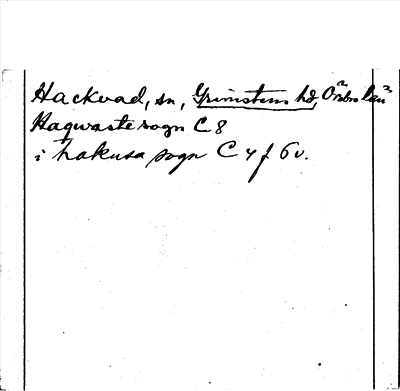 Hackvad, sn, Grimstens hd, Örebro län
Haqwaste sogn C 8
i hakusa sogn C 4 f 6v.